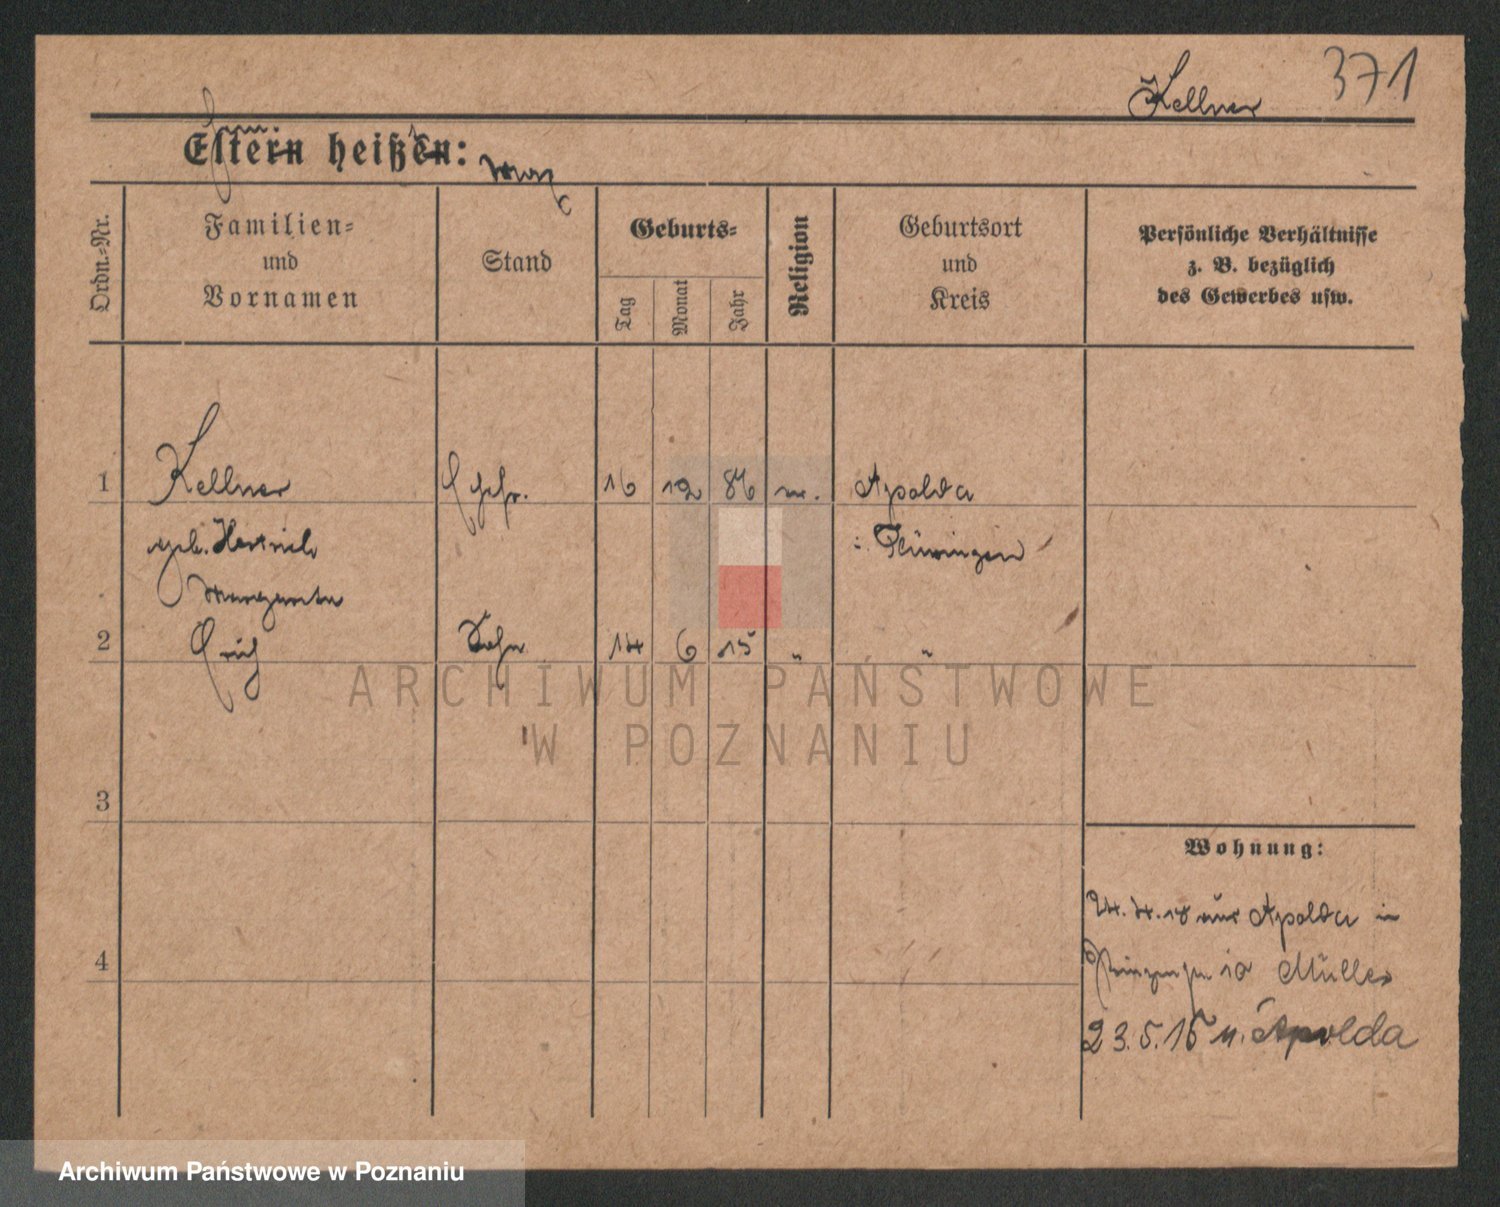 371
Kellner
Eltern heißen:
Max
Ordn.-Nr.
Familien-
und
Vornamen
Stand
Geburts-
Tag
Monat
Jahr
Religion
Geburtsort
und
Kreis
Persönliche Verhältnisse
z. B. bezüglich
des Gewerbes usw.
1 Kellner Ehefr. 16 12 86 Apolda
geb.
i. Thüringen
Margarete
2 Erich Sohn 14 6 15 " "
3
4
Wohnung:
24.4.18 aus Apolda in
10 Müller
23.5.18 n. Apolda
ARCHIWUM PAŃSTWOWE
W POZNANIU
Archiwum Państwowe w Poznaniu